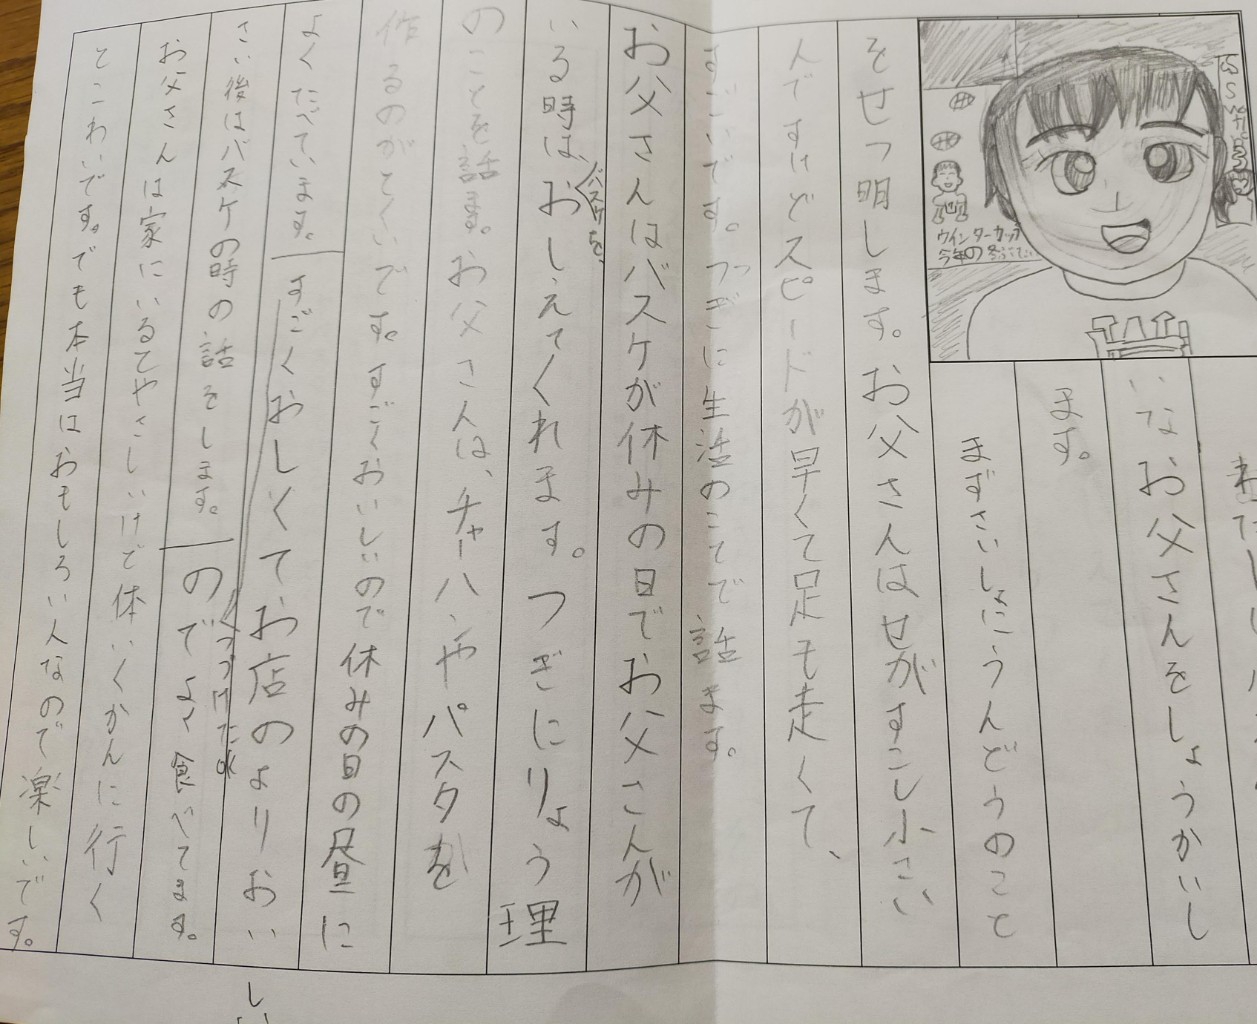 わたし
いなお父さんをしょうかいし
ます。
まずさいしょにうんどうのこと
をせつ明します。お父さんはせがすこし小さい
んですけどスピードが早くて足も走くて、
すごいです。つぎに生活のことで話ます。
お父さんはバスケが休みの日でお父さんが
いる時は、おしえてくれます。つぎにりょう理
バスケを、
のことを話ます。お父さんは、チャーハンやパスタを
作るのがとくいです。すごくおいしいので休みの日の昼に
よくたべています。すごくおしくてお店のよりおい
しい
さい後はバスケの時の話をします。のでよく食べてます。
お父さんは家にいるてやさしいけで体いくかんに行く
とこわいです。でも本当はおもしろい人なので楽しいです。
ウインターカップ
今年の